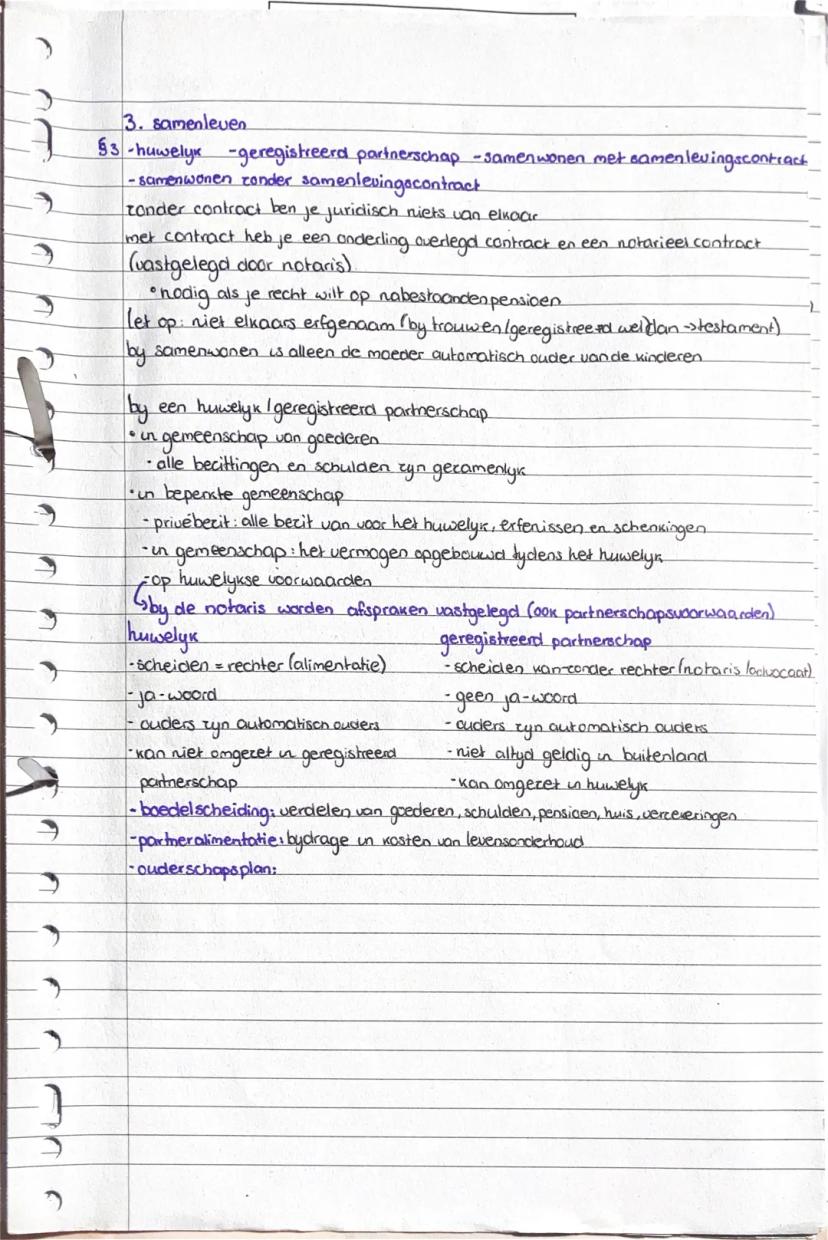 3. samenleven
§3 -huwelyk -geregistreerd partnerschap -samenwonen met samenlevingscontract
-samenwonen zonder samenlevingscontract
zonder contract ben je juridisch niets van elkaar
met contract heb je een onderling overlegd contract en een notarieel contract
(vastgelegd door notaris)
•nodig als je recht wilt op nabestaandenpensioen
let op: niet elkaars erfgenaam (by trouwen/geregistreerd wel) dan ->testament)
by samenwonen is alleen de moeder automatisch ouder van de kinderen
by een huwelyk/geregistreerd partnerschap
•in gemeenschap van goederen
- alle bezittingen en schulden zyn gezamenlyk
•in beperkte gemeenschap
- privébezit: alle bezit van voor het huwelyk, erfenissen en schenkingen
-in gemeenschap: het vermogen opgebouwd tydens het huwelyk
-op huwelykse voorwaarden
↳by de notaris worden afspraken vastgelegd (ook partnerschapsvoorwaarden)
huwelyk geregistreerd partnerschap
-scheiden = rechter (alimentatie) -scheiden kan zonder rechter (notaris/advocaat)
-ja-woord -geen ja-woord
- ouders zyn automatisch ouders -ouders zyn automatisch ouders
-kan niet omgezet in geregistreerd -niet altyd geldig in buitenland
partnerschap -kan omgezet in huwelyk
-boedelscheiding: verdelen van goederen, schulden, pensioen, huis, verzekeringen
-partneralimentatie: bydrage in kosten van levensonderhoud
-ouderschapsplan: